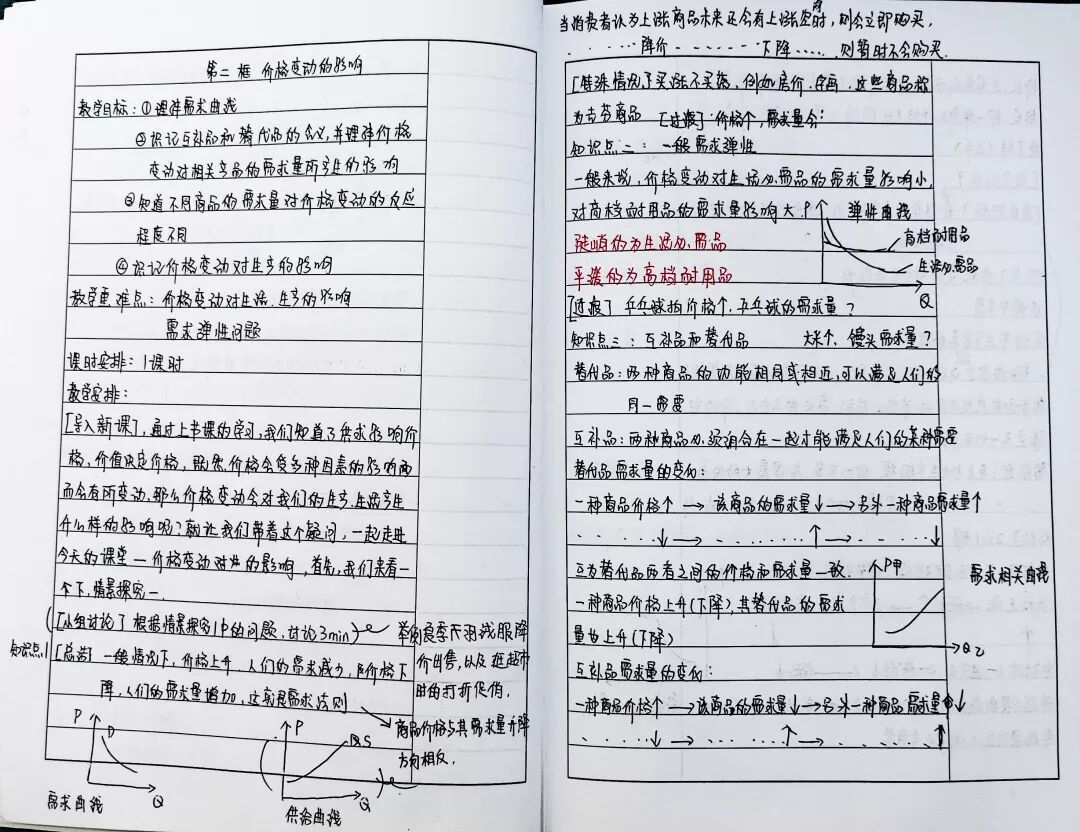 第二框 价格变动的影响
教学目标：①理解需求曲线
②识记互补品和替代品的含义,并理解价格
变动对相关商品的需求量所产生的影响
③知道不同商品的需求量对价格变动的反应
程度不同
④识记价格变动对生产的影响
教学重难点：价格变动对生活、生产的影响
需求弹性问题
课时安排：1课时
教学安排：
[导入新课],通过上节课的学习,我们知道了供求影响价
格,价值决定价格,既然价格会受多种因素的影响而
而会有所变动,那么价格变动会对我们的生产、生活产生
什么样的影响呢?就让我们带着这个疑问,一起走进
今天的课堂—价格变动对的影响,首先,我们来看一
下,情景探究一.
[小组讨论] 根据情景探究1中的问题,讨论3min)
举例反季羽绒服降
价出售,以及逛超市
时的打折促销.
知识点1
[总结] 一般情况下,价格上升,人们的需求减少,价格下
降,人们的需求量增加,这就是需求法则
商品价格与其需求量升降
方向相反.
P D Q
需求曲线
P S Q
供给曲线
当消费者认为上涨商品未来还会有上涨空间时,则会立即购买.
......降价------下降.....,则暂时不会购买.
[特殊情况]买涨不买落,例如房价、字画,这些商品称
为吉芬商品 [过渡] 价格↑,需求量会:
知识点二：一般需求弹性
一般来说,价格变动对生活必需品的需求量影响小,
对高档耐用品的需求量影响大.
P 弹性曲线
高档耐用品
生活必需品
Q
陡峭的为生活必需品
平缓的为高档耐用品
[过渡] 乒乓球拍价格↑,乒乓球的需求量?
知识点三：互补品和替代品 大米↑,馒头需求量?
替代品：两种商品的功能相同或相近,可以满足人们的
同一需要
互补品：两种商品必须组合在一起才能满足人们的某种需要
替代品需求量的变化：
一种商品价格↑→该商品的需求量↓→另外一种商品需求量↑
.....↓→......↑→.....↓
互为替代品两者之间的价格和需求量一致.
一种商品价格上升(下降),其替代品的需求
量也上升(下降)
P甲
需求相关曲线
Q乙
互补品需求量的变化：
一种商品价格↑→该商品的需求量↓→另外一种商品需求量↓
.....↓→......↑→.....↑